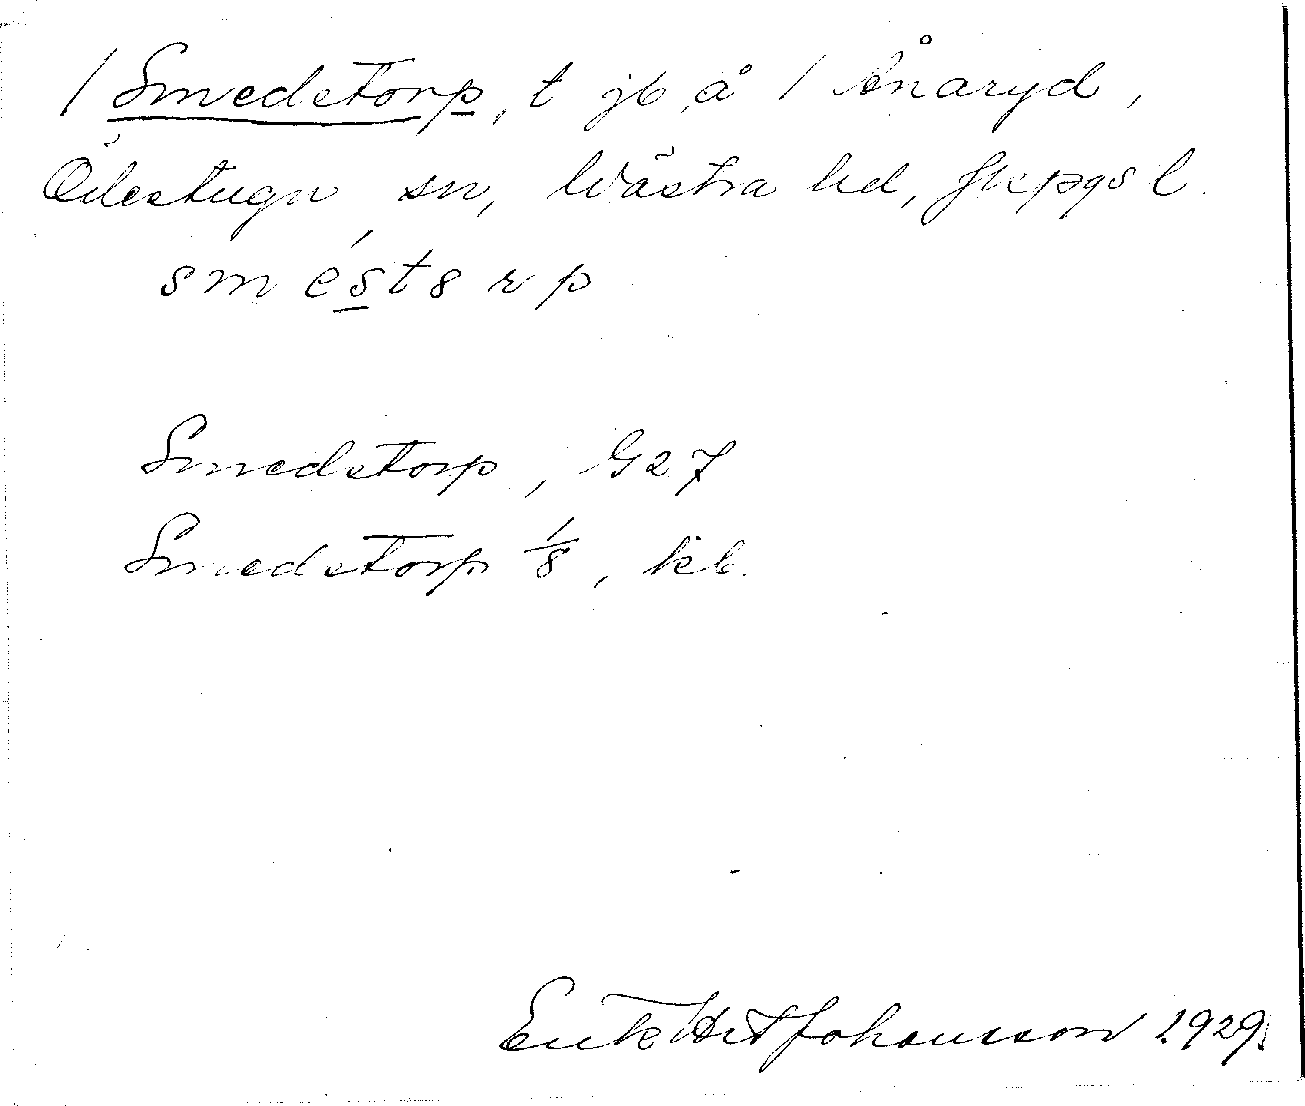 / Smedstorp, t jb å / Ånaryd,
Ödestugu sn, Västra hd, Jkpgs l.
sméstsrp
Smedstorp, G27
Smedstorp 1/8, kb.
Erik Johansson 1929.